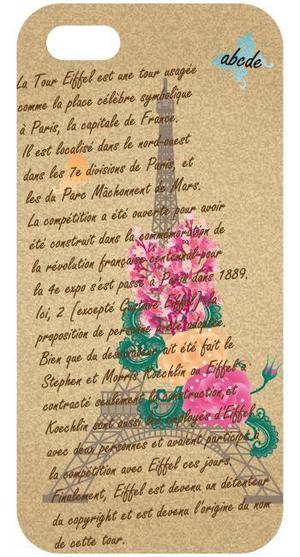 abcde
La Tour Eiffel est une tour usagée
comme la place célèbre symbolique
à Paris, la capitale de France.
Il est localisé dans le nord-ouest
dans les 7e divisions de Paris, et
les du Parc Mâchonnent de Mars.
La compétition a été ouverte pour avoir
été construit dans la commémoration de
la révolution française centennal pour
la 4e expo s'est passé à Paris dans 1889.
Ici, 2 [excepté Gustave Eiffel] la
proposition de personne a été adoptée.
Bien que du désaccord ait été fait le
Stephen et Morris, Koechlin ou Eiffel a
contracté seulement la construction,et
Koechlin sont aussi des employés d'Eiffel
avec deux personnes et avaient participé à
la compétition avec Eiffel ces jours.
Finalement, Eiffel est devenu un détenteur
du copyright et est devenu l'origine du nom
de cette tour.